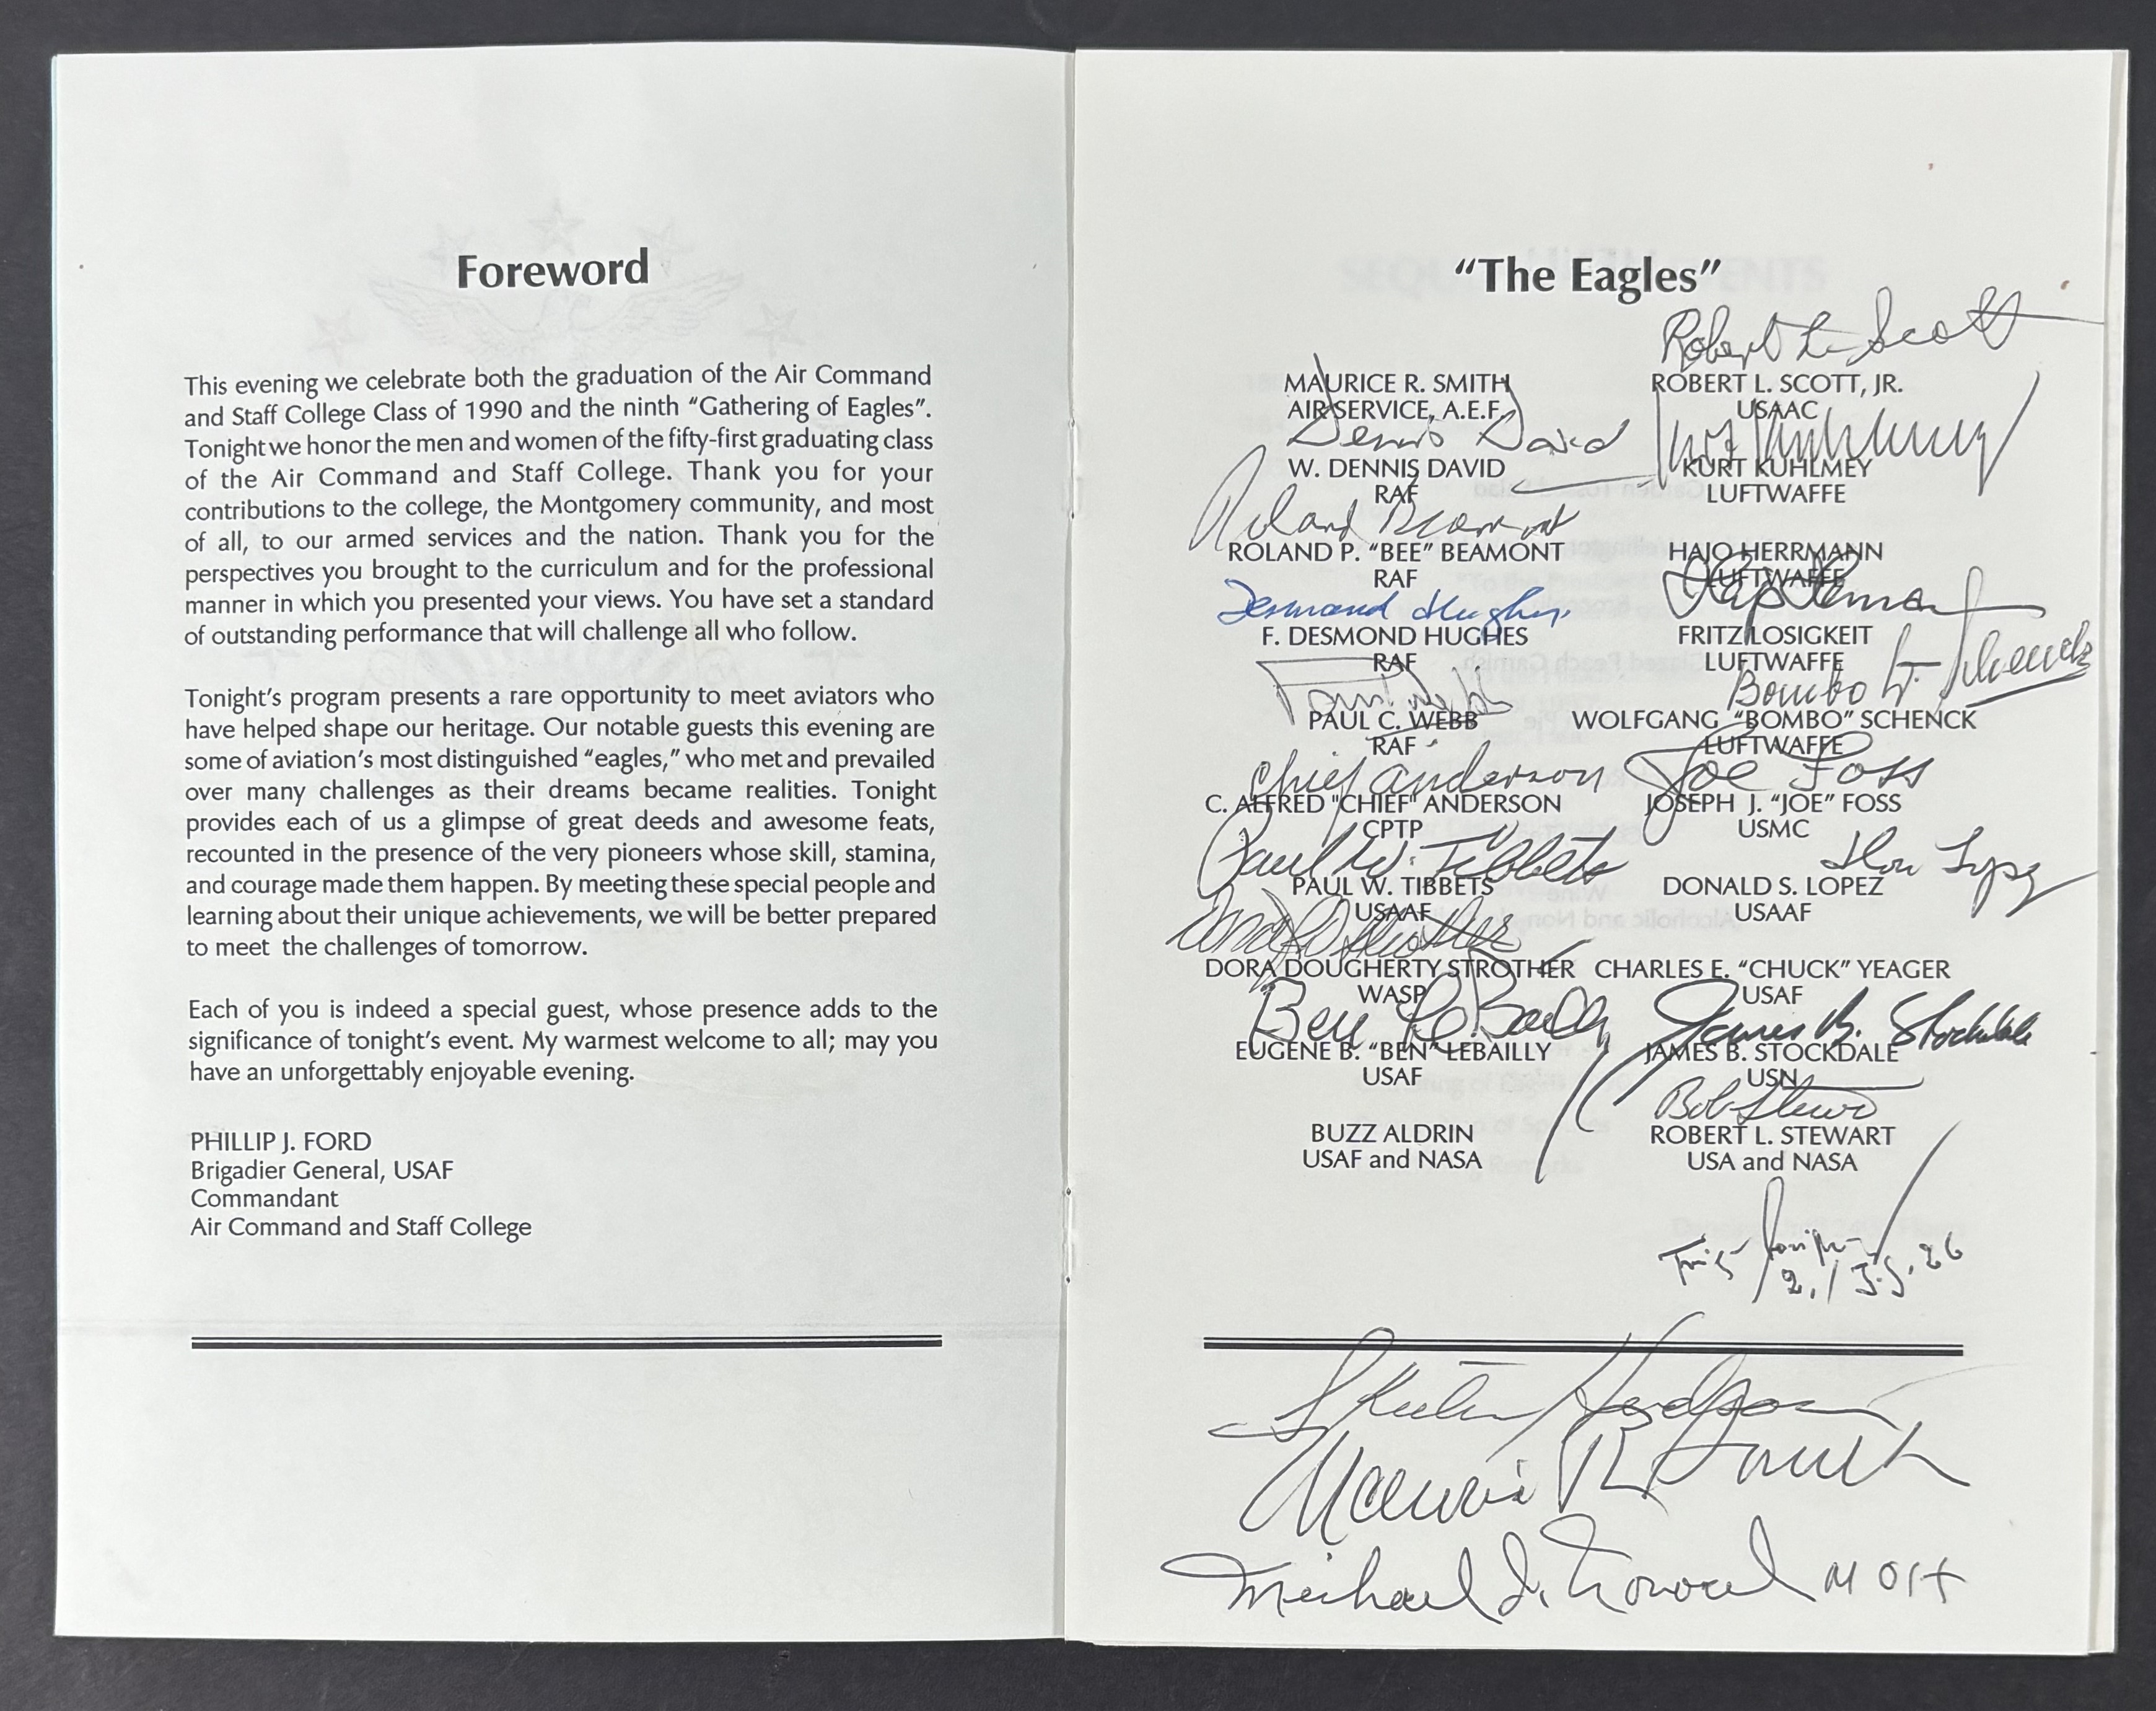 Foreword
This evening we celebrate both the graduation of the Air Command
and Staff College Class of 1990 and the ninth “Gathering of Eagles”.
Tonight we honor the men and women of the fifty-first graduating class
of the Air Command and Staff College. Thank you for your
contributions to the college, the Montgomery community, and most
of all, to our armed services and the nation. Thank you for the
perspectives you brought to the curriculum and for the professional
manner in which you presented your views. You have set a standard
of outstanding performance that will challenge all who follow.
Tonight’s program presents a rare opportunity to meet aviators who
have helped shape our heritage. Our notable guests this evening are
some of aviation’s most distinguished “eagles,” who met and prevailed
over many challenges as their dreams became realities. Tonight
provides each of us a glimpse of great deeds and awesome feats,
recounted in the presence of the very pioneers whose skill, stamina,
and courage made them happen. By meeting these special people and
learning about their unique achievements, we will be better prepared
to meet the challenges of tomorrow.
Each of you is indeed a special guest, whose presence adds to the
significance of tonight’s event. My warmest welcome to all; may you
have an unforgettably enjoyable evening.
PHILLIP J. FORD
Brigadier General, USAF
Commandant
Air Command and Staff College
“The Eagles”
MAURICE R. SMITH
AIR SERVICE, A.E.F.
Dennis David
W. DENNIS DAVID
RAF
Roland Beamont
ROLAND P. “BEE” BEAMONT
RAF
Desmond Hughes
F. DESMOND HUGHES
RAF
Paul Webb
PAUL C. WEBB
RAF
Chief Anderson
C. ALFRED "CHIEF" ANDERSON
CPTP
Paul W. Tibbets
PAUL W. TIBBETS
USAAF
Dora D Strother
DORA DOUGHERTY STROTHER
WASP
Ben LeBailly
EUGENE B. “BEN” LEBAILLY
USAF
BUZZ ALDRIN
USAF and NASA
Robert L Scott
ROBERT L. SCOTT, JR.
USAAC
Kurt Kuhlmey
KURT KUHLMEY
LUFTWAFFE
HAJO HERRMANN
LUFTWAFFE
Hajo Herrmann
FRITZ LOSIGKEIT
LUFTWAFFE
Bombo W. Schenck
WOLFGANG “BOMBO” SCHENCK
LUFTWAFFE
Joe Foss
JOSEPH J. “JOE” FOSS
USMC
Don Lopez
DONALD S. LOPEZ
USAAF
CHARLES E. “CHUCK” YEAGER
USAF
James B. Stockdale
JAMES B. STOCKDALE
USN
Bob Stewart
ROBERT L. STEWART
USA and NASA
Fritz Losigkeit
Skeeter Hudson
Maurice R Smith
Michael J. Novosel MOH